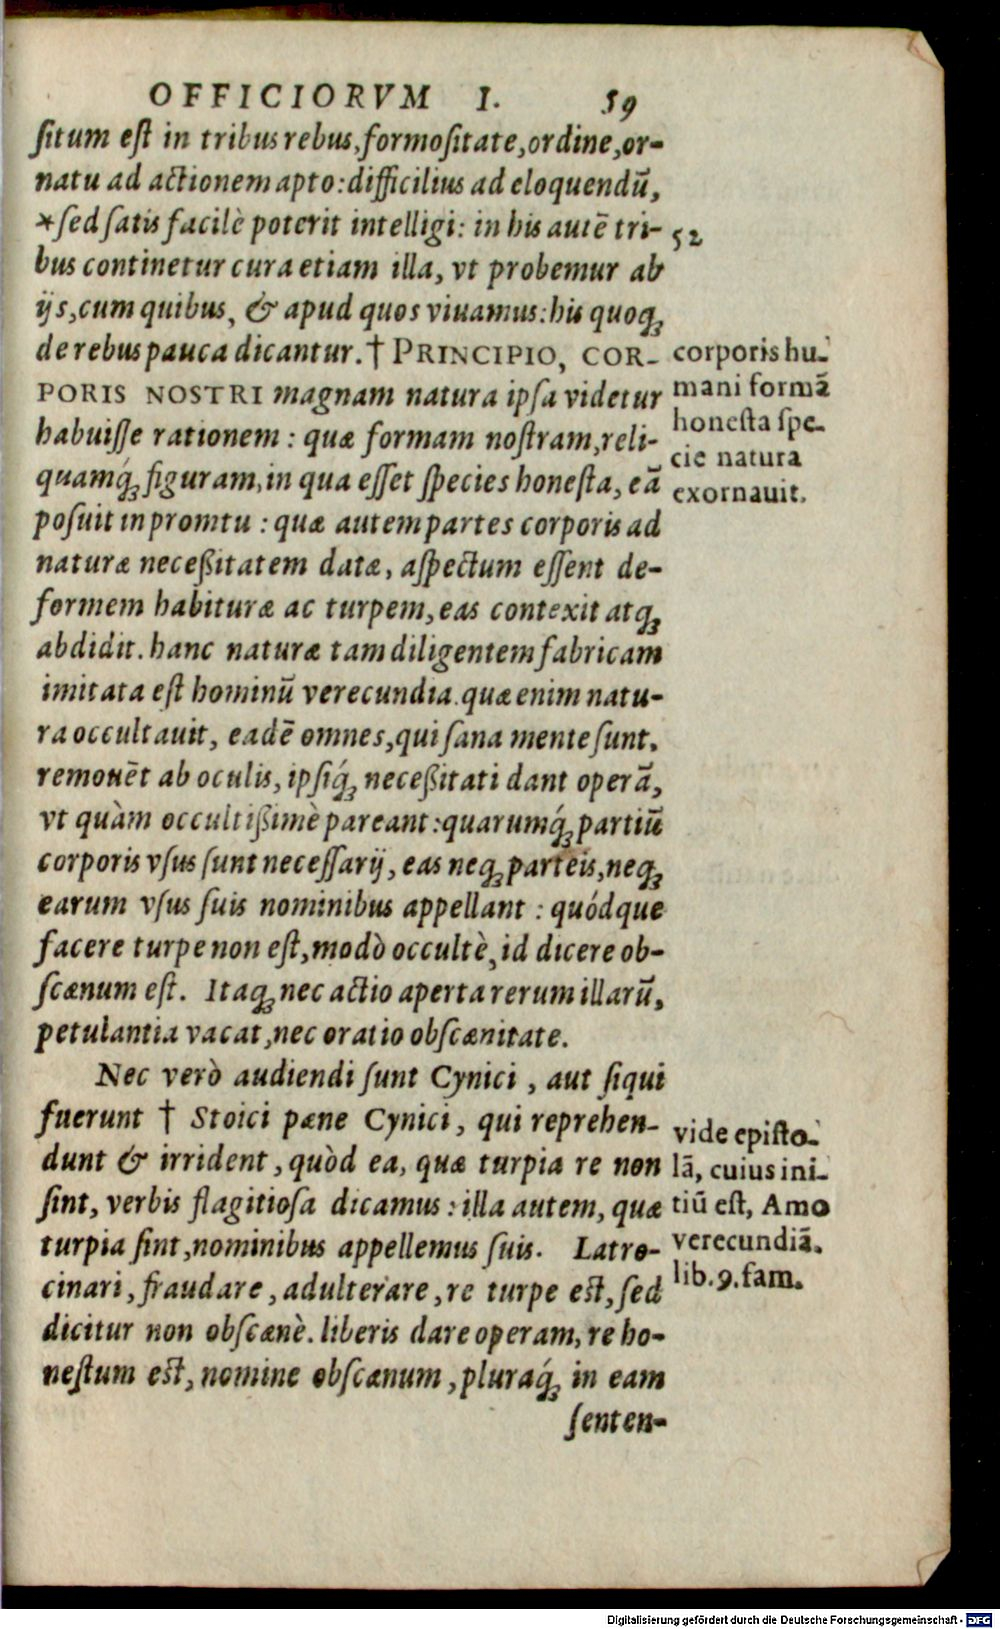 OFFICIORVM I. 59
ſitum eſt in tribus rebus, formoſitate, ordine, or-
natu ad actionem apto: difficilius ad eloquendū,
*ſed ſatis facilè poterit intelligi: in his autē tri-
52
bus continetur cura etiam illa, vt probemur ab
ijs, cum quibus, & apud quos viuamus: his quoq;
de rebus pauca dicantur. † PRINCIPIO, COR-
PORIS NOSTRI magnam natura ipſa videtur
habuiſſe rationem: quæ formam noſtram, reli-
quamq́; figuram, in qua eſſet ſpecies honeſta, eā
poſuit in promtu: quæ autem partes corporis ad
naturæ neceßitatem datæ, aſpectum eſſent de-
formem habituræ ac turpem, eas contexit atq;
abdidit. hanc naturæ tam diligentem fabricam
imitata eſt hominū verecundia. quæ enim natu-
ra occultauit, eadē omnes, qui ſana mente ſunt,
remouēt ab oculis, ipſiq́; neceßitati dant operā,
vt quàm occultißimè pareant: quarumq́; partiū
corporis vſus ſunt neceſſarij, eas neq; parteis, neq;
earum vſus ſuis nominibus appellant: quódque
facere turpe non eſt, modò occultè, id dicere ob-
ſcænum eſt. Itaq; nec actio aperta rerum illarū,
petulantia vacat, nec oratio obſcænitate.
Nec verò audiendi ſunt Cynici, aut ſiqui
fuerunt † Stoici pæne Cynici, qui reprehen-
dunt & irrident, quòd ea, quæ turpia re non
ſint, verbis flagitioſa dicamus: illa autem, quæ
turpia ſint, nominibus appellemus ſuis. Latro-
cinari, fraudare, adulterare, re turpe eſt, ſed
dicitur non obſcænè. liberis dare operam, re ho-
neſtum eſt, nomine obſcænum, pluraq́; in eam
ſenten-
corporis hu-
mani formā
honeſta ſpe-
cie natura
exornauit.
vide epiſto-
lā, cuius ini-
tiū eſt, Amo
verecundiā.
lib. 9. fam.
Digitalisierung gefördert durch die Deutsche Forschungsgemeinschaft - DFG